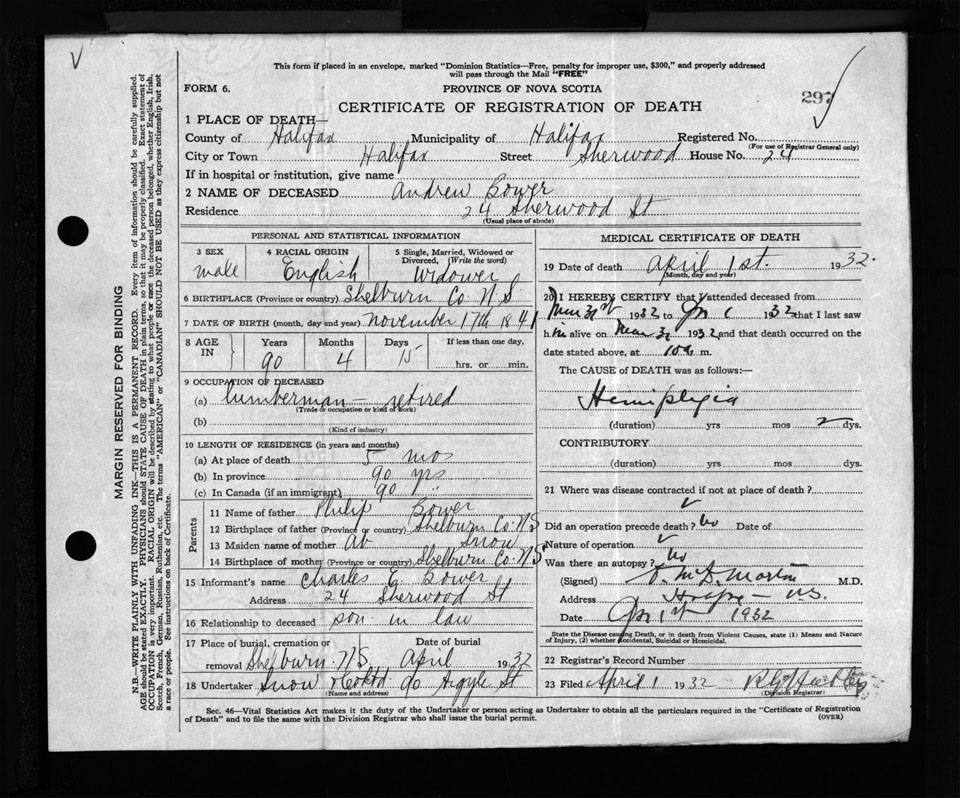 V
This form if placed in an envelope, marked "Dominion Statistics—Free, penalty for improper use, $300," and properly addressed
will pass through the Mail "FREE"
FORM 6.
PROVINCE OF NOVA SCOTIA
297
CERTIFICATE OF REGISTRATION OF DEATH
1 PLACE OF DEATH—
County of Halifax Municipality of Halifax Registered No.
(For use of Registrar General only)
City or Town Halifax Street Sherwood House No. 24
If in hospital or institution, give name
2 NAME OF DECEASED Andrew Bower
Residence 24 Sherwood St
(Usual place of abode)
PERSONAL AND STATISTICAL INFORMATION
3 SEX
male
4 RACIAL ORIGIN
English
5 Single, Married, Widowed or
Divorced, (Write the word)
Widower
6 BIRTHPLACE (Province or country) Shelburn Co N S
7 DATE OF BIRTH (month, day and year) November 17th 1841
8 AGE
IN
Years
90
Months
4
Days
15
If less than one day,
hrs. or min.
9 OCCUPATION OF DECEASED
(a) Lumberman — retired
(Trade or occupation or kind of work)
(b)
(Kind of industry)
10 LENGTH OF RESIDENCE (in years and months)
(a) At place of death 5 mos
(b) In province 90 yrs
(c) In Canada (if an immigrant) 90 "
Parents
11 Name of father Philip Bower
12 Birthplace of father (Province or country) Shelburn Co. N S
13 Maiden name of mother Ab Snow
14 Birthplace of mother (Province or country) Shelburn Co. N S
15 Informant's name Charles E Bower
Address 24 Sherwood St
16 Relationship to deceased son in law
17 Place of burial, cremation or
removal Shelburn. N S
Date of burial
April 1932
18 Undertaker Snow & Co Ltd 90 Argyle St
(Name and address)
MEDICAL CERTIFICATE OF DEATH
19 Date of death April 1st. 1932.
(Month, day and year)
20 I HEREBY CERTIFY that I attended deceased from
Mar 31st 1932 to Apr 1 1932 that I last saw
him alive on Mar 31 1932 and that death occurred on the
date stated above, at 10 a m.
The CAUSE of DEATH was as follows:—
Hemiplegia
(duration) yrs mos 2 dys.
CONTRIBUTORY
(duration) yrs mos dys.
21 Where was disease contracted if not at place of death?
Did an operation precede death? No Date of
Nature of operation
Was there an autopsy? No
(Signed) M.D. Morton M.D.
Address Halifax — N.S.
Date Apr 1st 1932
State the Disease causing Death, or in death from Violent Causes, state (1) Means and Nature
of Injury, (2) whether Accidental, Suicidal or Homicidal.
22 Registrar's Record Number
23 Filed April 1 1932
(Division Registrar)
Sec. 46—Vital Statistics Act makes it the duty of the Undertaker or person acting as Undertaker to obtain all the particulars required in the "Certificate of Registration
of Death" and to file the same with the Division Registrar who shall issue the burial permit.
(OVER)
MARGIN RESERVED FOR BINDING
N.B.—WRITE PLAINLY WITH UNFADING INK—THIS IS A PERMANENT RECORD. Every item of information should be carefully supplied.
AGE should be stated EXACTLY. PHYSICIANS should STATE CAUSE OF DEATH in plain terms, so that it may be properly classified. Exact statement of
OCCUPATION is very important. RACIAL ORIGIN will be described by stating to what people or race the deceased person belonged, whether English, Irish,
Scotch, French, German, Russian, Ruthenian, etc. The terms "AMERICAN" or "CANADIAN" SHOULD NOT BE USED as they express citizenship but not
a race or people. See instructions on back of Certificate.